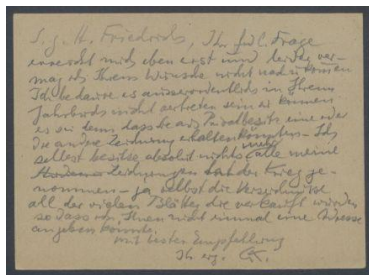 S. g. H. Friedrichs, Ihre frdl. Frage
erreicht mich eben erst und leider ver-
mag ich Ihrem Wunsche nicht nachzukommen
Ich bedaure es ausserordentlich in Ihrem
Jahrbuch nicht vertreten sein zu können
es sei denn, dass Sie aus Privatbesitz eine oder
die andere Zeichnung erhalten könnten. Ich
selbst besitze absolut nichts mehr, alle meine
Zeichnungen hat der Krieg ge-
nommen – ja selbst die Verzeichnisse
all der vielen Blätter die verkauft wurden
so dass ich Ihnen nicht einmal eine Adresse
angeben könnte.
Mit bester Empfehlung
Ihr erg.